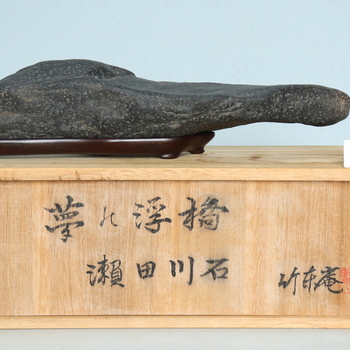 夢の浮橋
瀬田川石
竹東庵